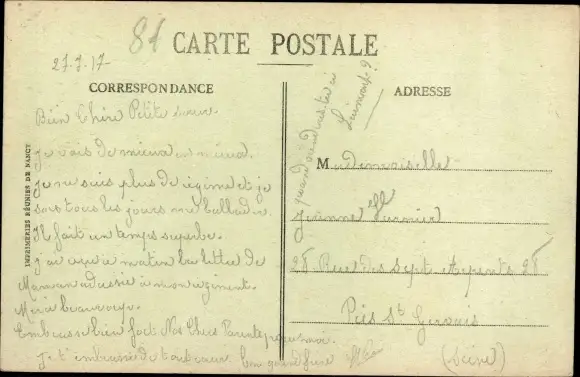 81
CARTE POSTALE
27.7.17-
CORRESPONDANCE
Bien Chère Petite soeur.
je vais de mieux en mieux.
je ne suis plus de régime et je
sors tous les jours me ballader.
Il fait un temps superbe.
j'ai reçu ce matin la lettre de
Maman adressée à mon régiment.
Merci beaucoup.
Embrasse bien fort Nos Chers Parents pour moi.
Je t'embrasse de tout coeur
ton grand frère
IMPRIMERIES RÉUNIES DE NANCY
quand viendras tu à
ADRESSE
Mademoiselle
Jeanne
28 Rue des Sept Arpents 28
Prés St Gervais
(Seine)